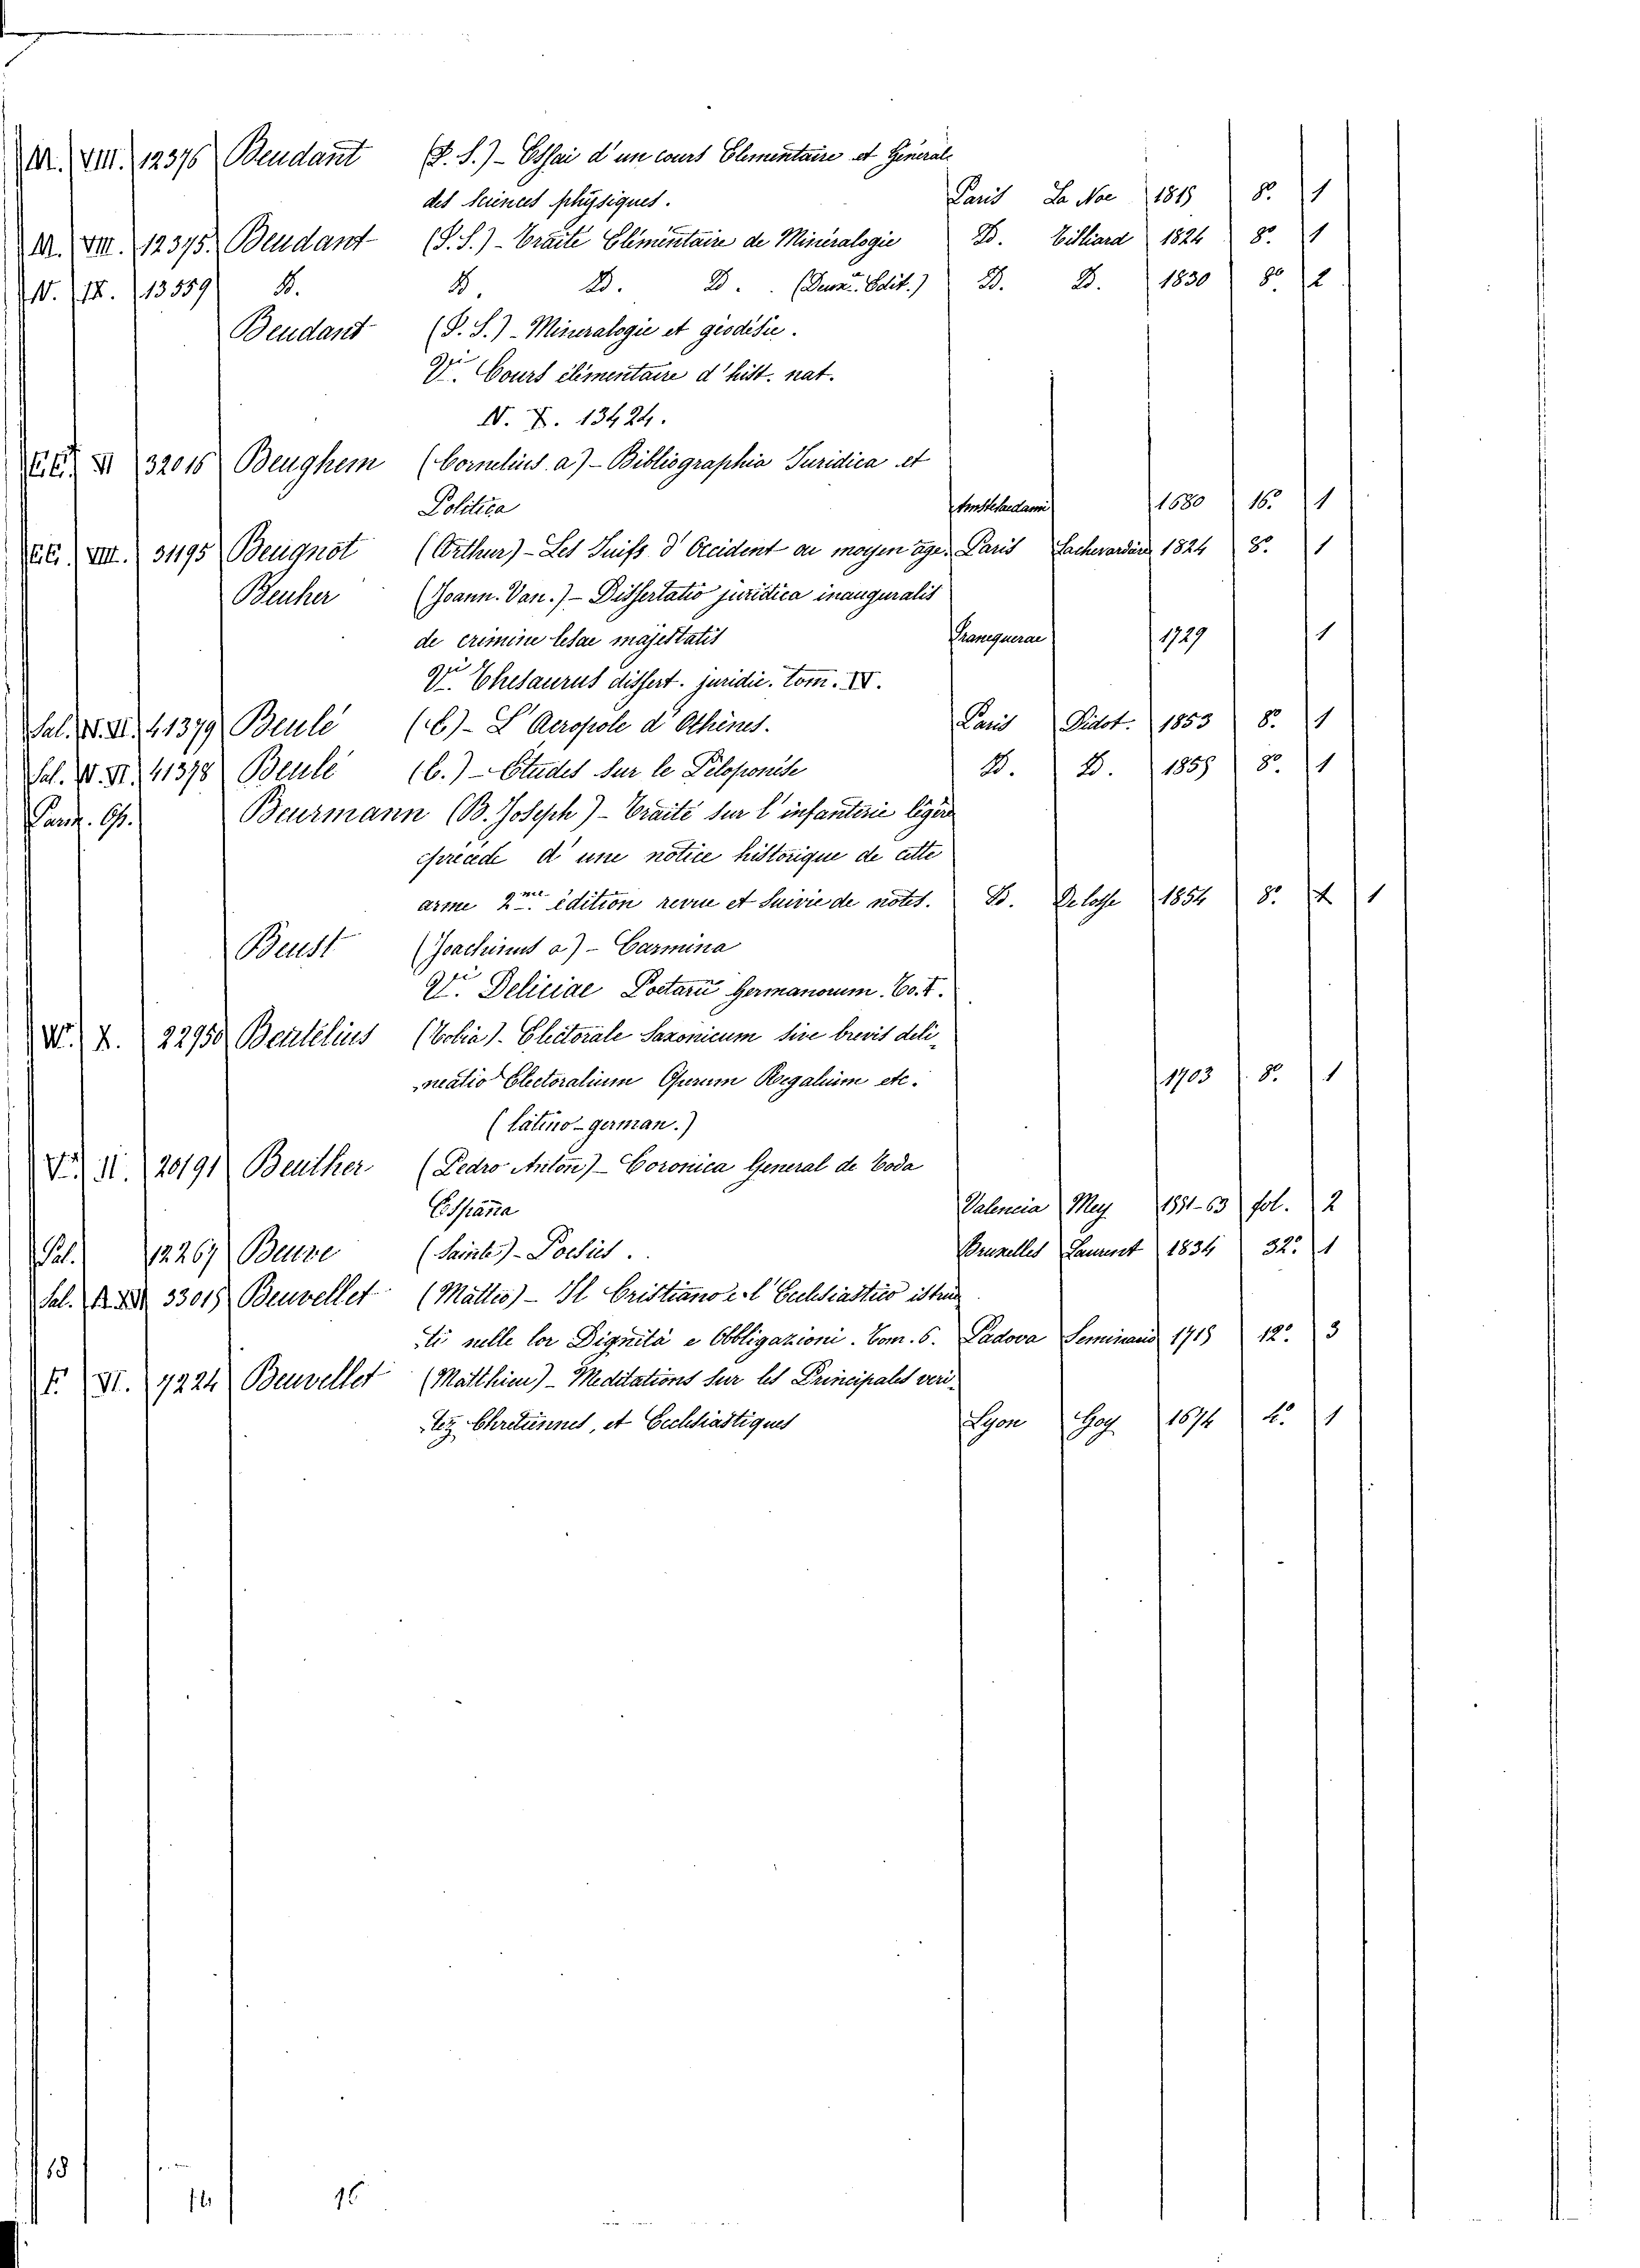 M. VIII. 12376 Beudant (F. S.) - Essai d'un cours Elementaire et Géneral
des Sciences physiques. Paris La Noe 1815 8º 1
M. VIII. 12375. Beudant (F. S.) - Traite Elémentaire de Minéralogie D. Tilliard 1824 8º 1
N. IX. 13559 D. D. D. D. (Deux. Edit.) D. D. 1830 8º 2
Beudant (F. S.) - Mineralogie et géodésie.
Vi. Cours élémentaire d'hist. nat.
N. X. 13424.
EE. XI 32016 Beughem (Cornelius a) - Bibliographia Juridica et
Politica Amstelaedami 1680 16º 1
EE. VIII. 31195 Beugnot (Arthur) - Les Juifs d'Occident ou moyen age. Paris Lachevardiere 1824 8º 1
Beuher (Joann. Van.) - Dissertatio juridica inauguralis
de crimine lesae majestatis Franequerae 1729 1
Vi. Thesaurus dissert. juridic. tom. IV.
Sal. N. II. 41379 Beulé (E) - L'Acropole d'Athènes. Paris Didot. 1853 8º 1
Sal. N. II. 41378 Beulé (E.) - Etudes sur le Péloponèse D. D. 1855 8º 1
Parm. Op. Beurmann (B. Joseph) - Traité sur l'infanterie légère
précede d'une notice historique de cette
arme 2me édition revue et suivie de notes. D. Delosse 1854 8º 4 1
Beust (Joachinus a) - Carmina
Vi. Deliciae Poetarū Germanorum. To. I.
W. X. 22950 Beutelius (Tobia). Electorale Saxonicum sive brevis deli-
neatio Electoralium Operum Regalium etc. 1703 8º 1
(latino-german.)
V. II. 20191 Beuther (Pedro Anton) - Coronica General de Toda
Espānna Valencia Mey 1551-63 fol. 2
Sal. 12267 Beuve (Sainte) - Poesies. Bruxelles Laurent 1834 32º 1
Sal. 33015 Beuvellet (Matteo) - Il Cristiano e l'Ecclesiastico istrui
ti nelle lor Dignità e Obbligazioni. Tom. 6. Padova Seminario 1715 12º 3
F. VI. 7224 Beuvellet (Matthieu) - Meditations sur les Principales veri-
tez Chretiennes, et Ecclesiastiques Lyon Goy 1674 4º 1